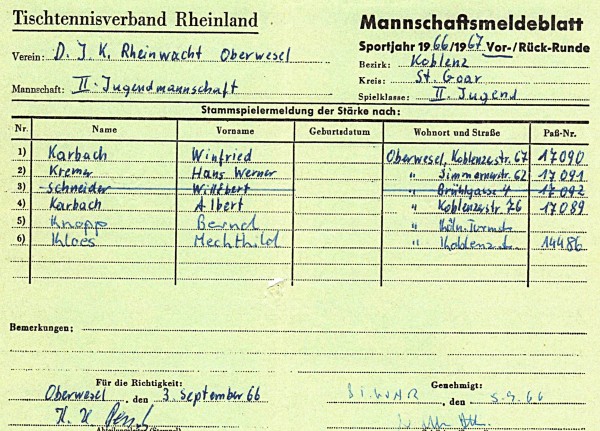 Tischtennisverband Rheinland
Mannschaftsmeldeblatt
Sportjahr 1966/1967 Vor-/Rück-Runde
Verein: D. J. K. Rheinwacht Oberwesel
Bezirk: Koblenz
Kreis: St. Goar
Mannschaft: II. Jugendmannschaft
Spielklasse: II. Jugend
Stammspielermeldung der Stärke nach:
Nr. Name Vorname Geburtsdatum Wohnort und Straße Paß-Nr.
1) Karbach Winfried Oberwesel, Koblenzestr. 67 17090
2) Kremer Hans Werner " Simmernerstr. 62 17091
3) Schneider Willibert " Brühlgasse 4 17092
4) Karbach Albert " Koblenzerstr. 76 17089
5) Knopp Bernd "
6) Kloes Mechthild " 14486
Bemerkungen:
Für die Richtigkeit:
Genehmigt:
Oberwesel, den 3. September 66
, den 5.9.66